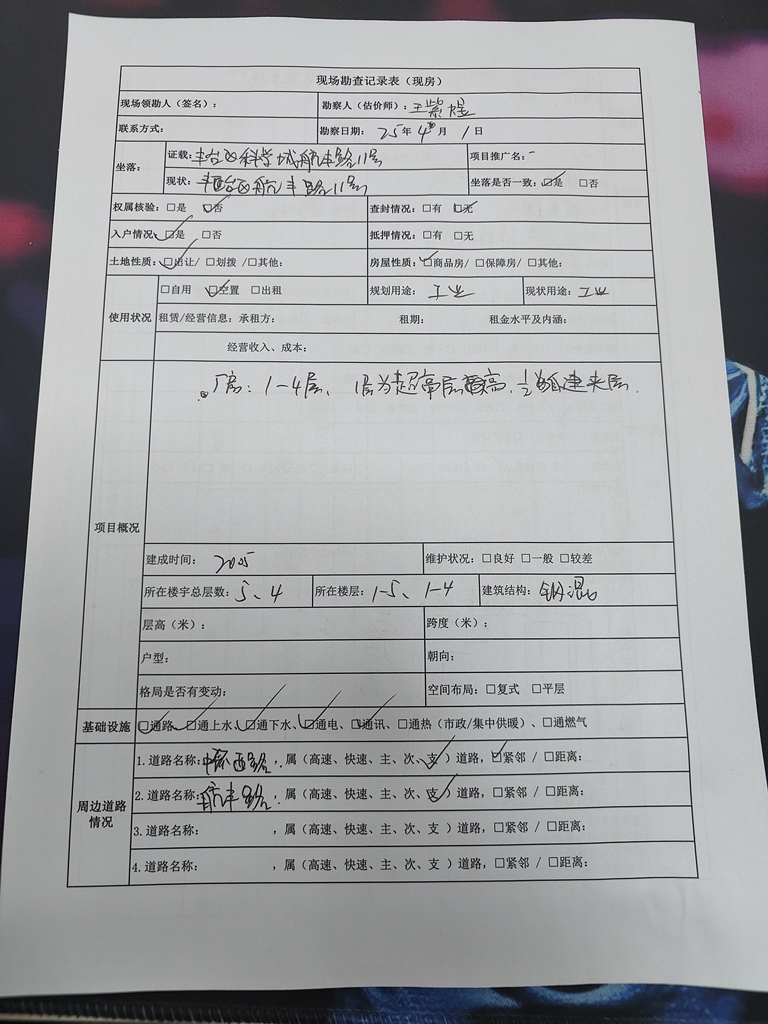 现场勘查记录表（现房）
现场领勘人（签名）： 勘察人（估价师）：王紫煜
联系方式： 勘察日期：25年4月1日
坐落： 证载：丰台区科学城航丰路11号 项目推广名：-
现状：丰台区航丰路11号 坐落是否一致：☑是 □否
权属核验：□是 ☑否 查封情况：□有 ☑无
入户情况：☑是 □否 抵押情况：□有 □无
土地性质：☑出让/ □划拨 /□其他： 房屋性质：☑商品房/ □保障房/ □其他：
使用状况 □自用 ☑空置 □出租 规划用途：工业 现状用途：工业
租赁/经营信息：承租方： 租期： 租金水平及内涵：
经营收入、成本：
项目概况 厂房：1-4层、1层为超高层高，自建夹层
建成时间：2005 维护状况：□良好 □一般 □较差
所在楼宇总层数：5、4 所在楼层：1-5、1-4 建筑结构：钢混
层高（米）： 跨度（米）：
户型： 朝向：
格局是否有变动： 空间布局：□复式 □平层
基础设施 ☑通路、☑通上水、☑通下水、☑通电、☑通讯、□通热（市政/集中供暖）、□通燃气
周边道路情况 1.道路名称：西路，属（高速、快速、主、次、支✓）道路，☑紧邻 / □距离：
2.道路名称：航丰路，属（高速、快速、主、次、支✓）道路，□紧邻 / □距离：
3.道路名称： ，属（高速、快速、主、次、支 ）道路，□紧邻 / □距离：
4.道路名称： ，属（高速、快速、主、次、支 ）道路，□紧邻 / □距离：